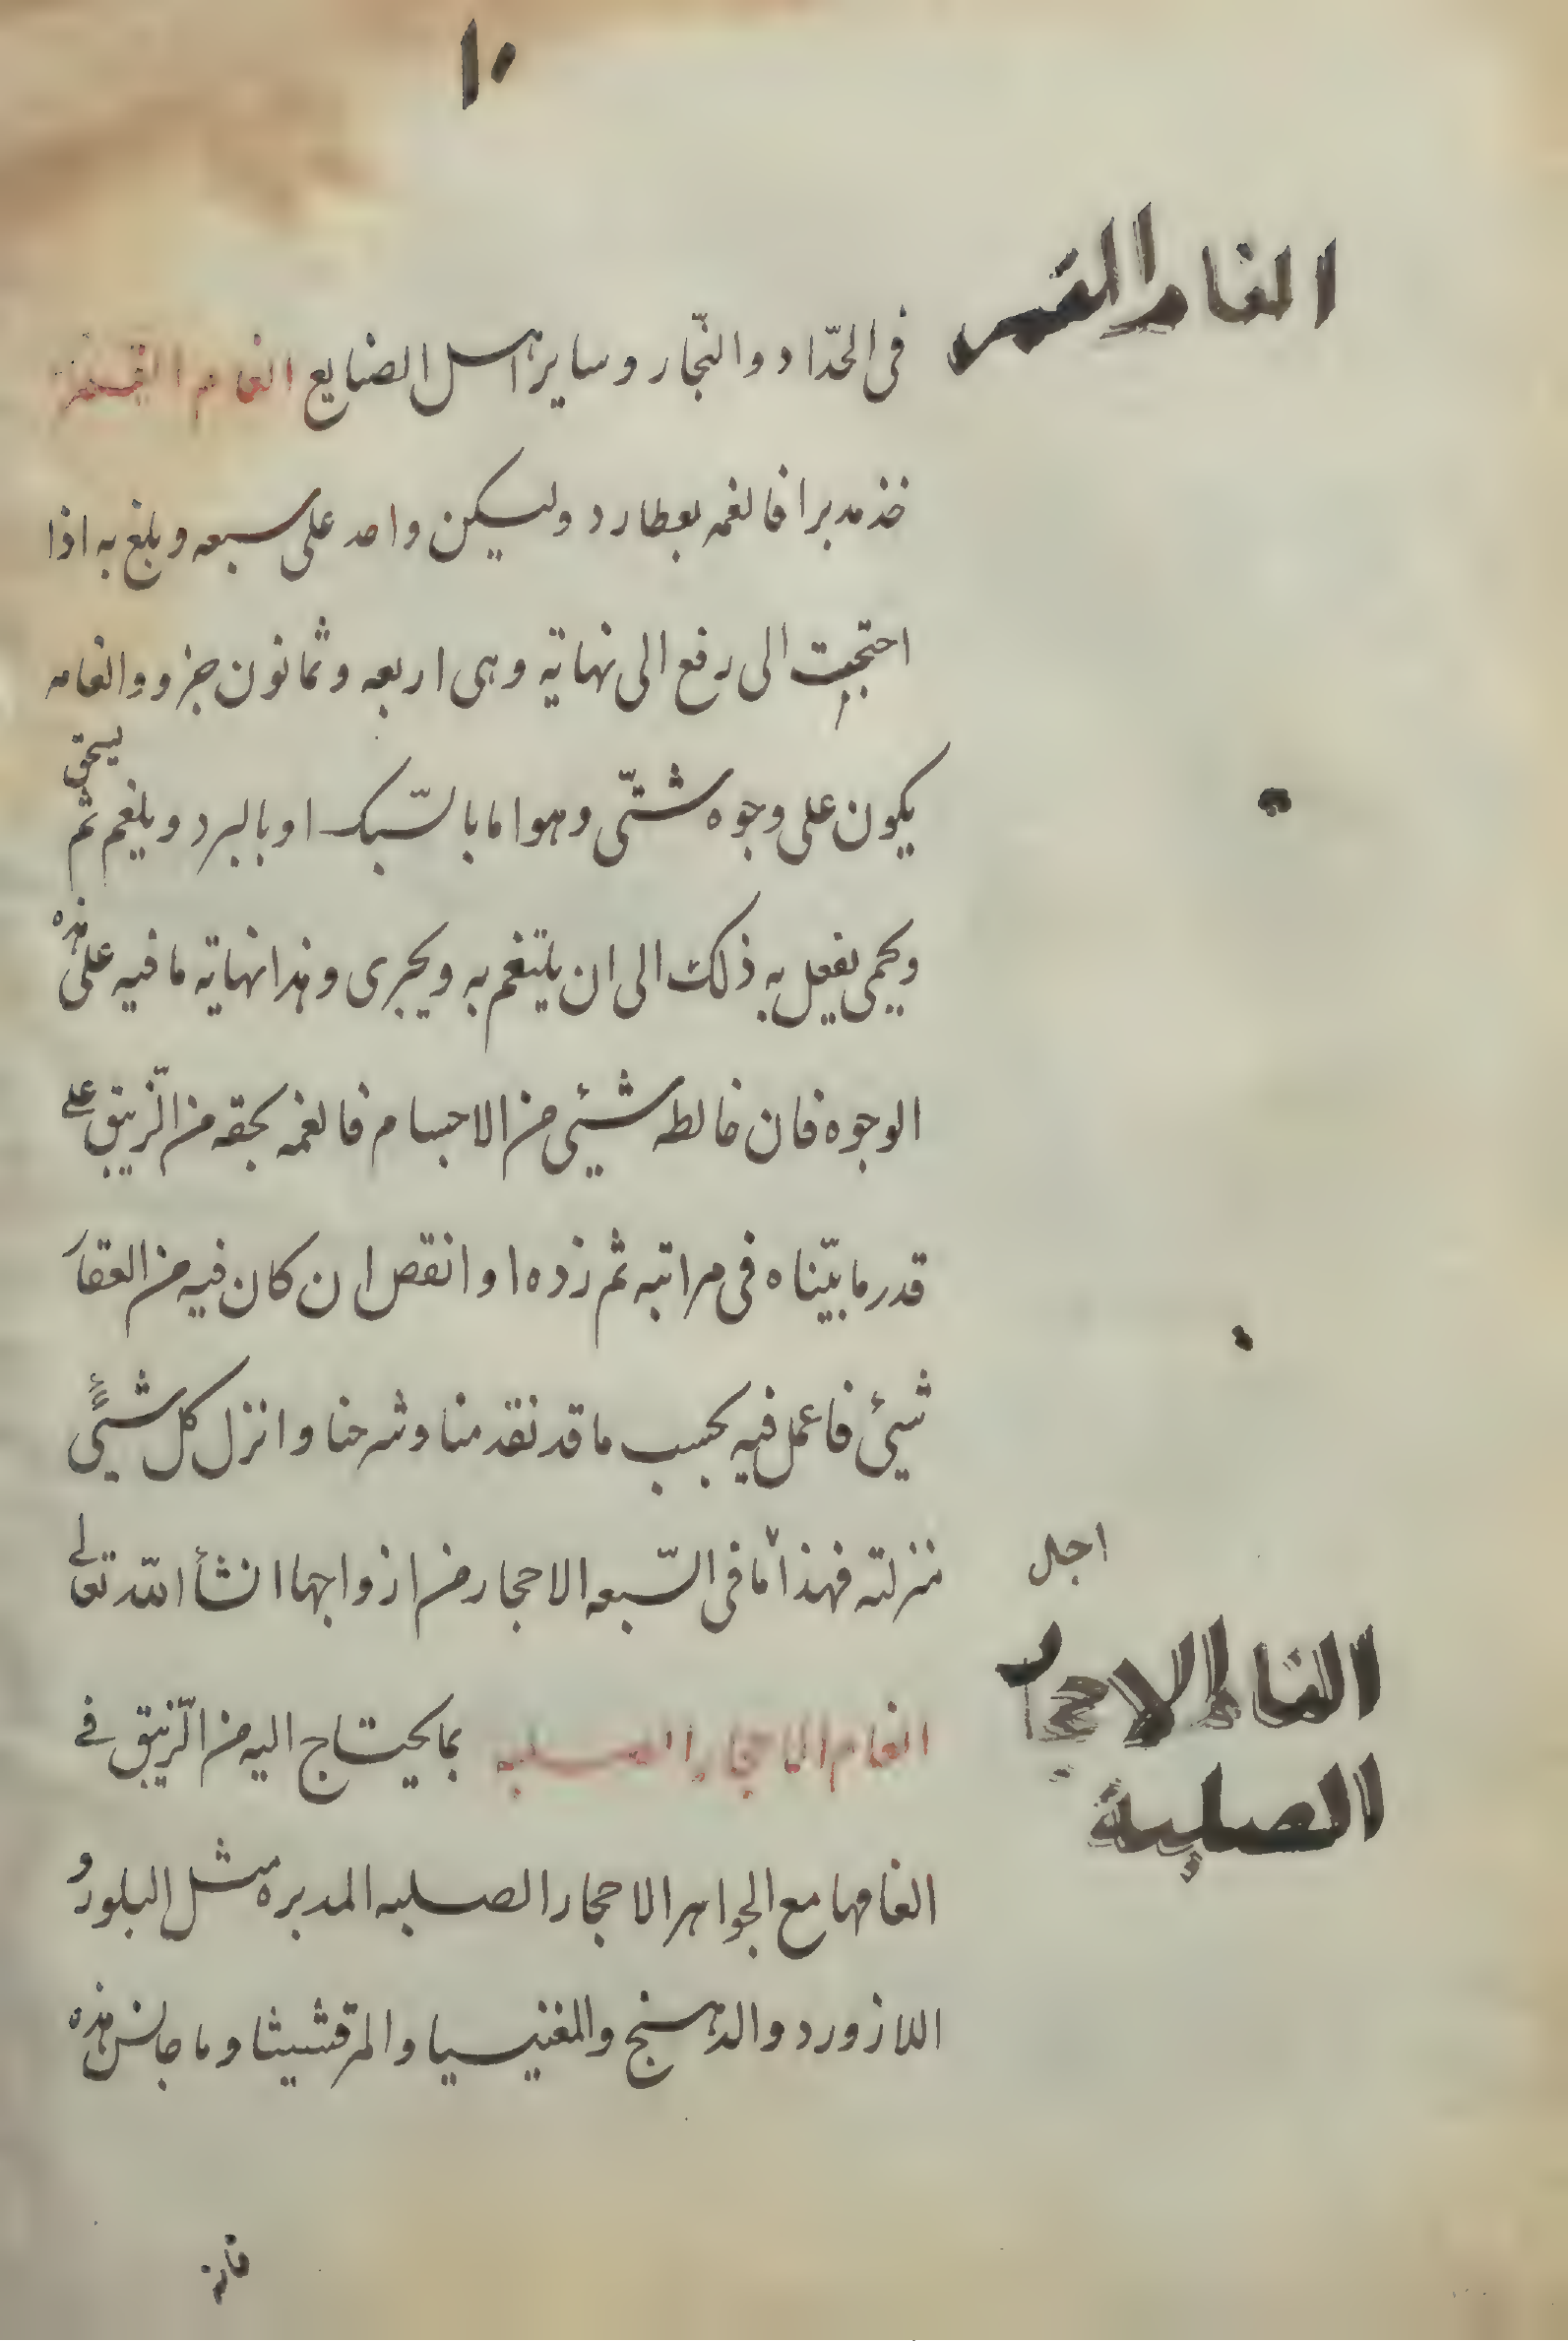 ١٠
الغام القمر
فى الحدّاد والنّجار وساير اهل الصنايع الغام القمر
خذ مدبرا فالغمه بعطارد وليكن واحد على سبعه ويلغ به اذا
احتجت الى رفع الى نهاتيه وهى اربعه وثمانون جزو والغامه
يكون على وجوه شتّى وهو اما بالسّبك او بالبرد ويلغم ثم يسحق
ويحمى يفعل به ذلك الى ان يلتغم به ويجرى وهذا نهاتيه ما فيه على هذه
الوجوه فان خالطه شيئى من الاجسام فالغمه بحقه من الزّيبق على
قدر ما بيّناه فى مراتبه ثم زده او انقص ان كان فيه من العقار
شيئ فاعمل فيه بحسب ما قد تقدمنا وشرحنا وانزل كل شيئ
منزلته فهذا ما فى السّبعه الاحجار من ازواجها انشأ الله تعالى
اجل
الغام الاحجار
الصلبة
الغام الاحجار الصلبه بما يحتاج اليه من الزّيبق فى
الغامها مع الجواهر الاحجار الصلبه المدبره مثل البلور و
اللازورد والدهنج والمغنيسيا والمرقشيثا وما جانس هذه
فانه